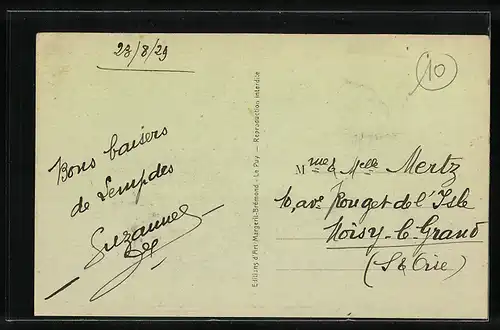 23/8/29
10
Bons baisers
de Lempdes
Suzanne
Editions d'Art Margerit-Brémond - Le Puy — Reproduction interdite
Mme & Melle Mertz
10, ave Rouget de l'Isle
Noisy-le-Grand
(S & Oise)